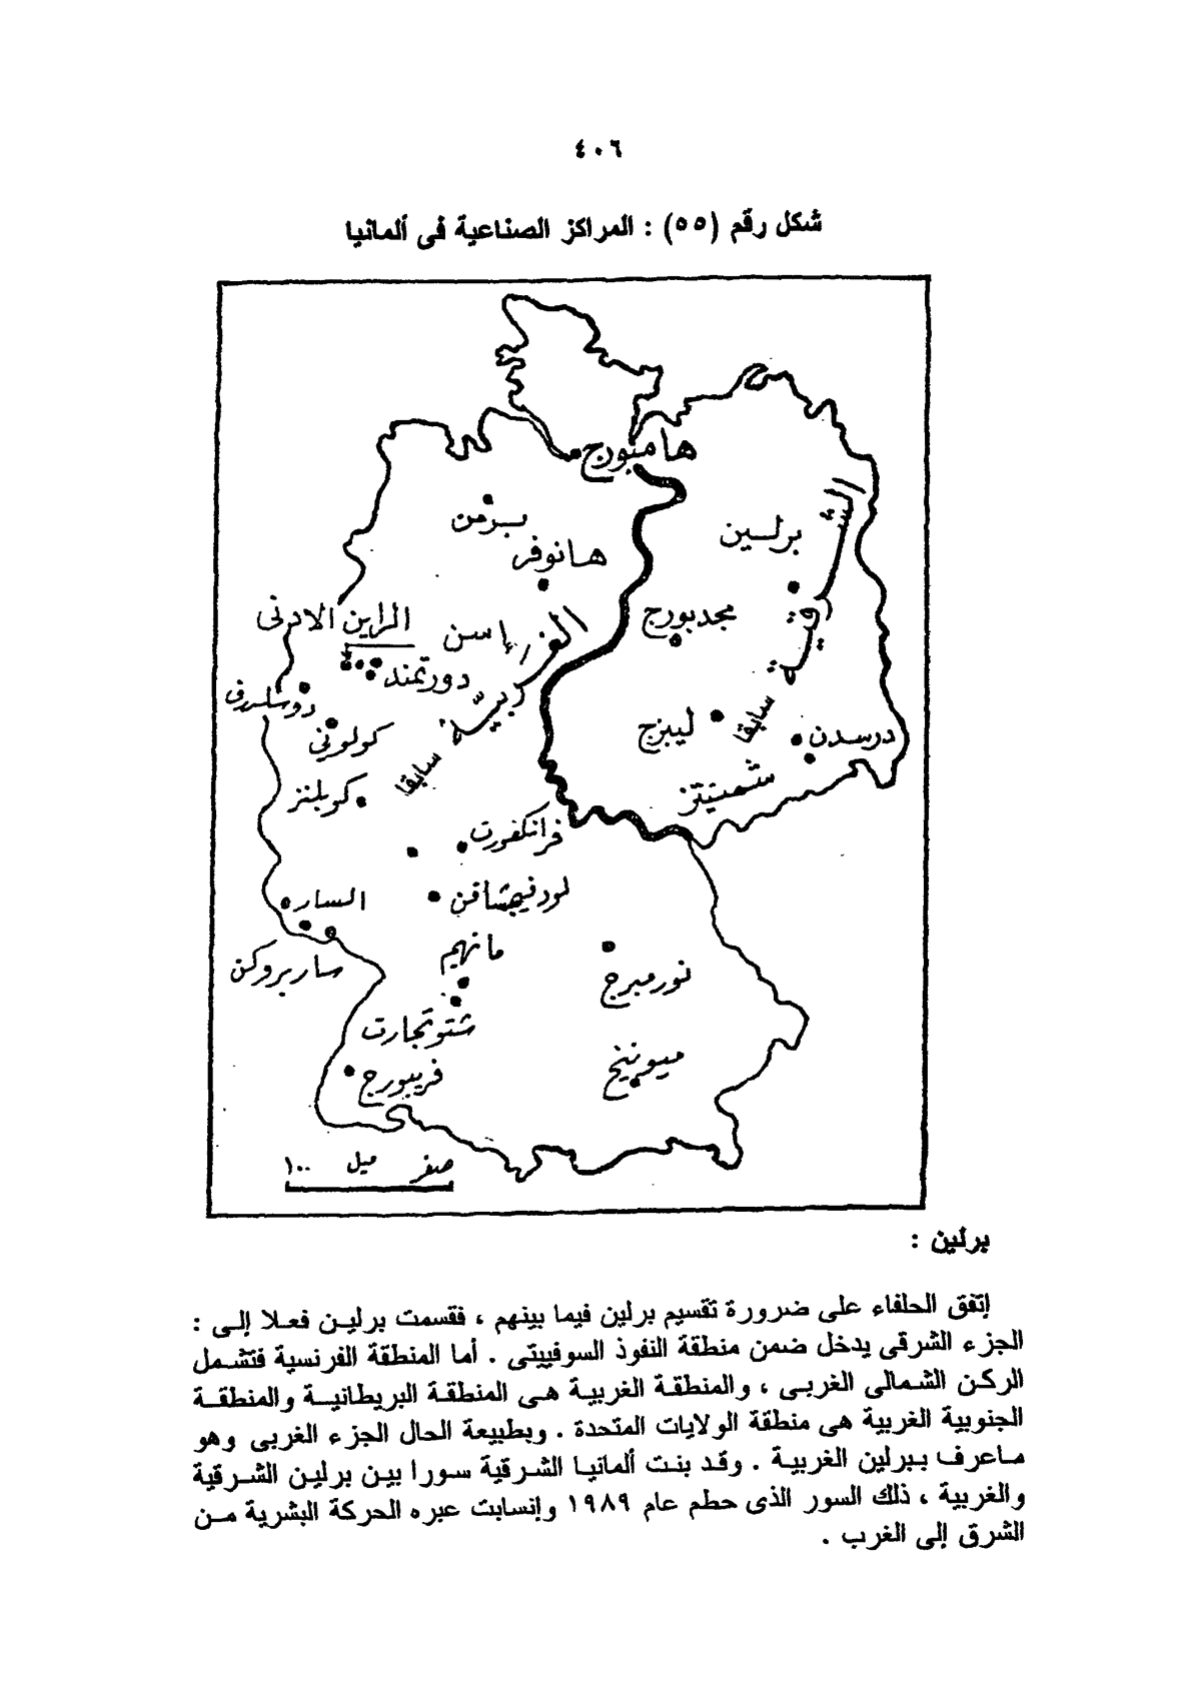 ٤٠٦
شكل رقم (٥٥) : المراكز الصناعية فى ألمانيا
هامبورج
برمن
هانوفر
برلـين
الشــرقيــة
سابقا
مجدبورج
الراين الادنى
إسن
الغربيّـة
سابقا
دورتمند
دوسلدرف
كولونى
كوبلنز
ليبزج
درسدن
شمنيتز
فرانكفورت
لودفيجشافن
السار
ساربروكن
مانهيم
نورمبرج
شتوتجارت
فريبورج
ميونيخ
صفر ميل ١٠٠
برلين :
إتفق الحلفاء على ضرورة تقسيم برلين فيما بينهم ، فقسمت برليـن فعـلا إلـى :
الجزء الشرقى يدخل ضمن منطقة النفوذ السوفييتى . أما المنطقة الفرنسية فتشـمل
الركـن الشـمالى الغربـى ، والمنطقـة الغربيـة هـى المنطقـة البريطانيــة والمنطقــة
الجنوبية الغربية هى منطقة الولايات المتحدة . وبطبيعة الحال الجزء الغربى وهو
مـاعرف ببرلين الغربيـة . وقـد بنـت ألمانيـا الشـرقية سـورا بيـن برليـن الشـرقية
والغربية ، ذلك السور الذى حطم عام ١٩٨٩ وإنسابت عبره الحركة البشرية مـن
الشرق إلى الغرب .